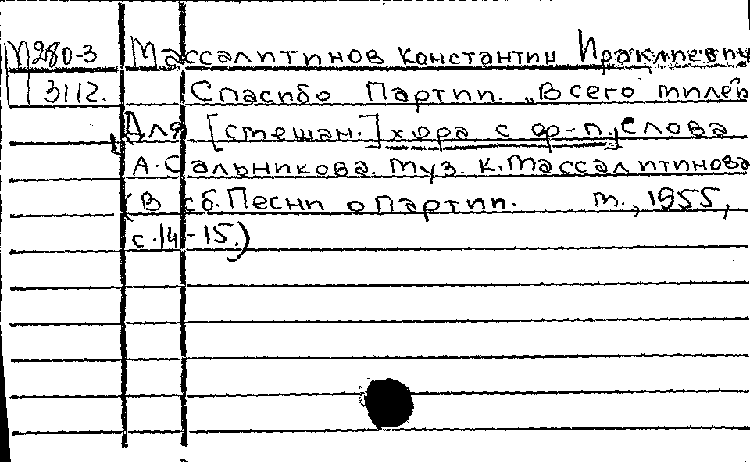 М280-3 Массалитинов Константин Ираклиевич
3112. Спасибо Партии. „Всего милей
Для [смешан.] хора с ф-п, слова
А. Сальникова. муз К. Массалитинова
(В сб. Песни о партии. М., 1955,
с. 14-15.)